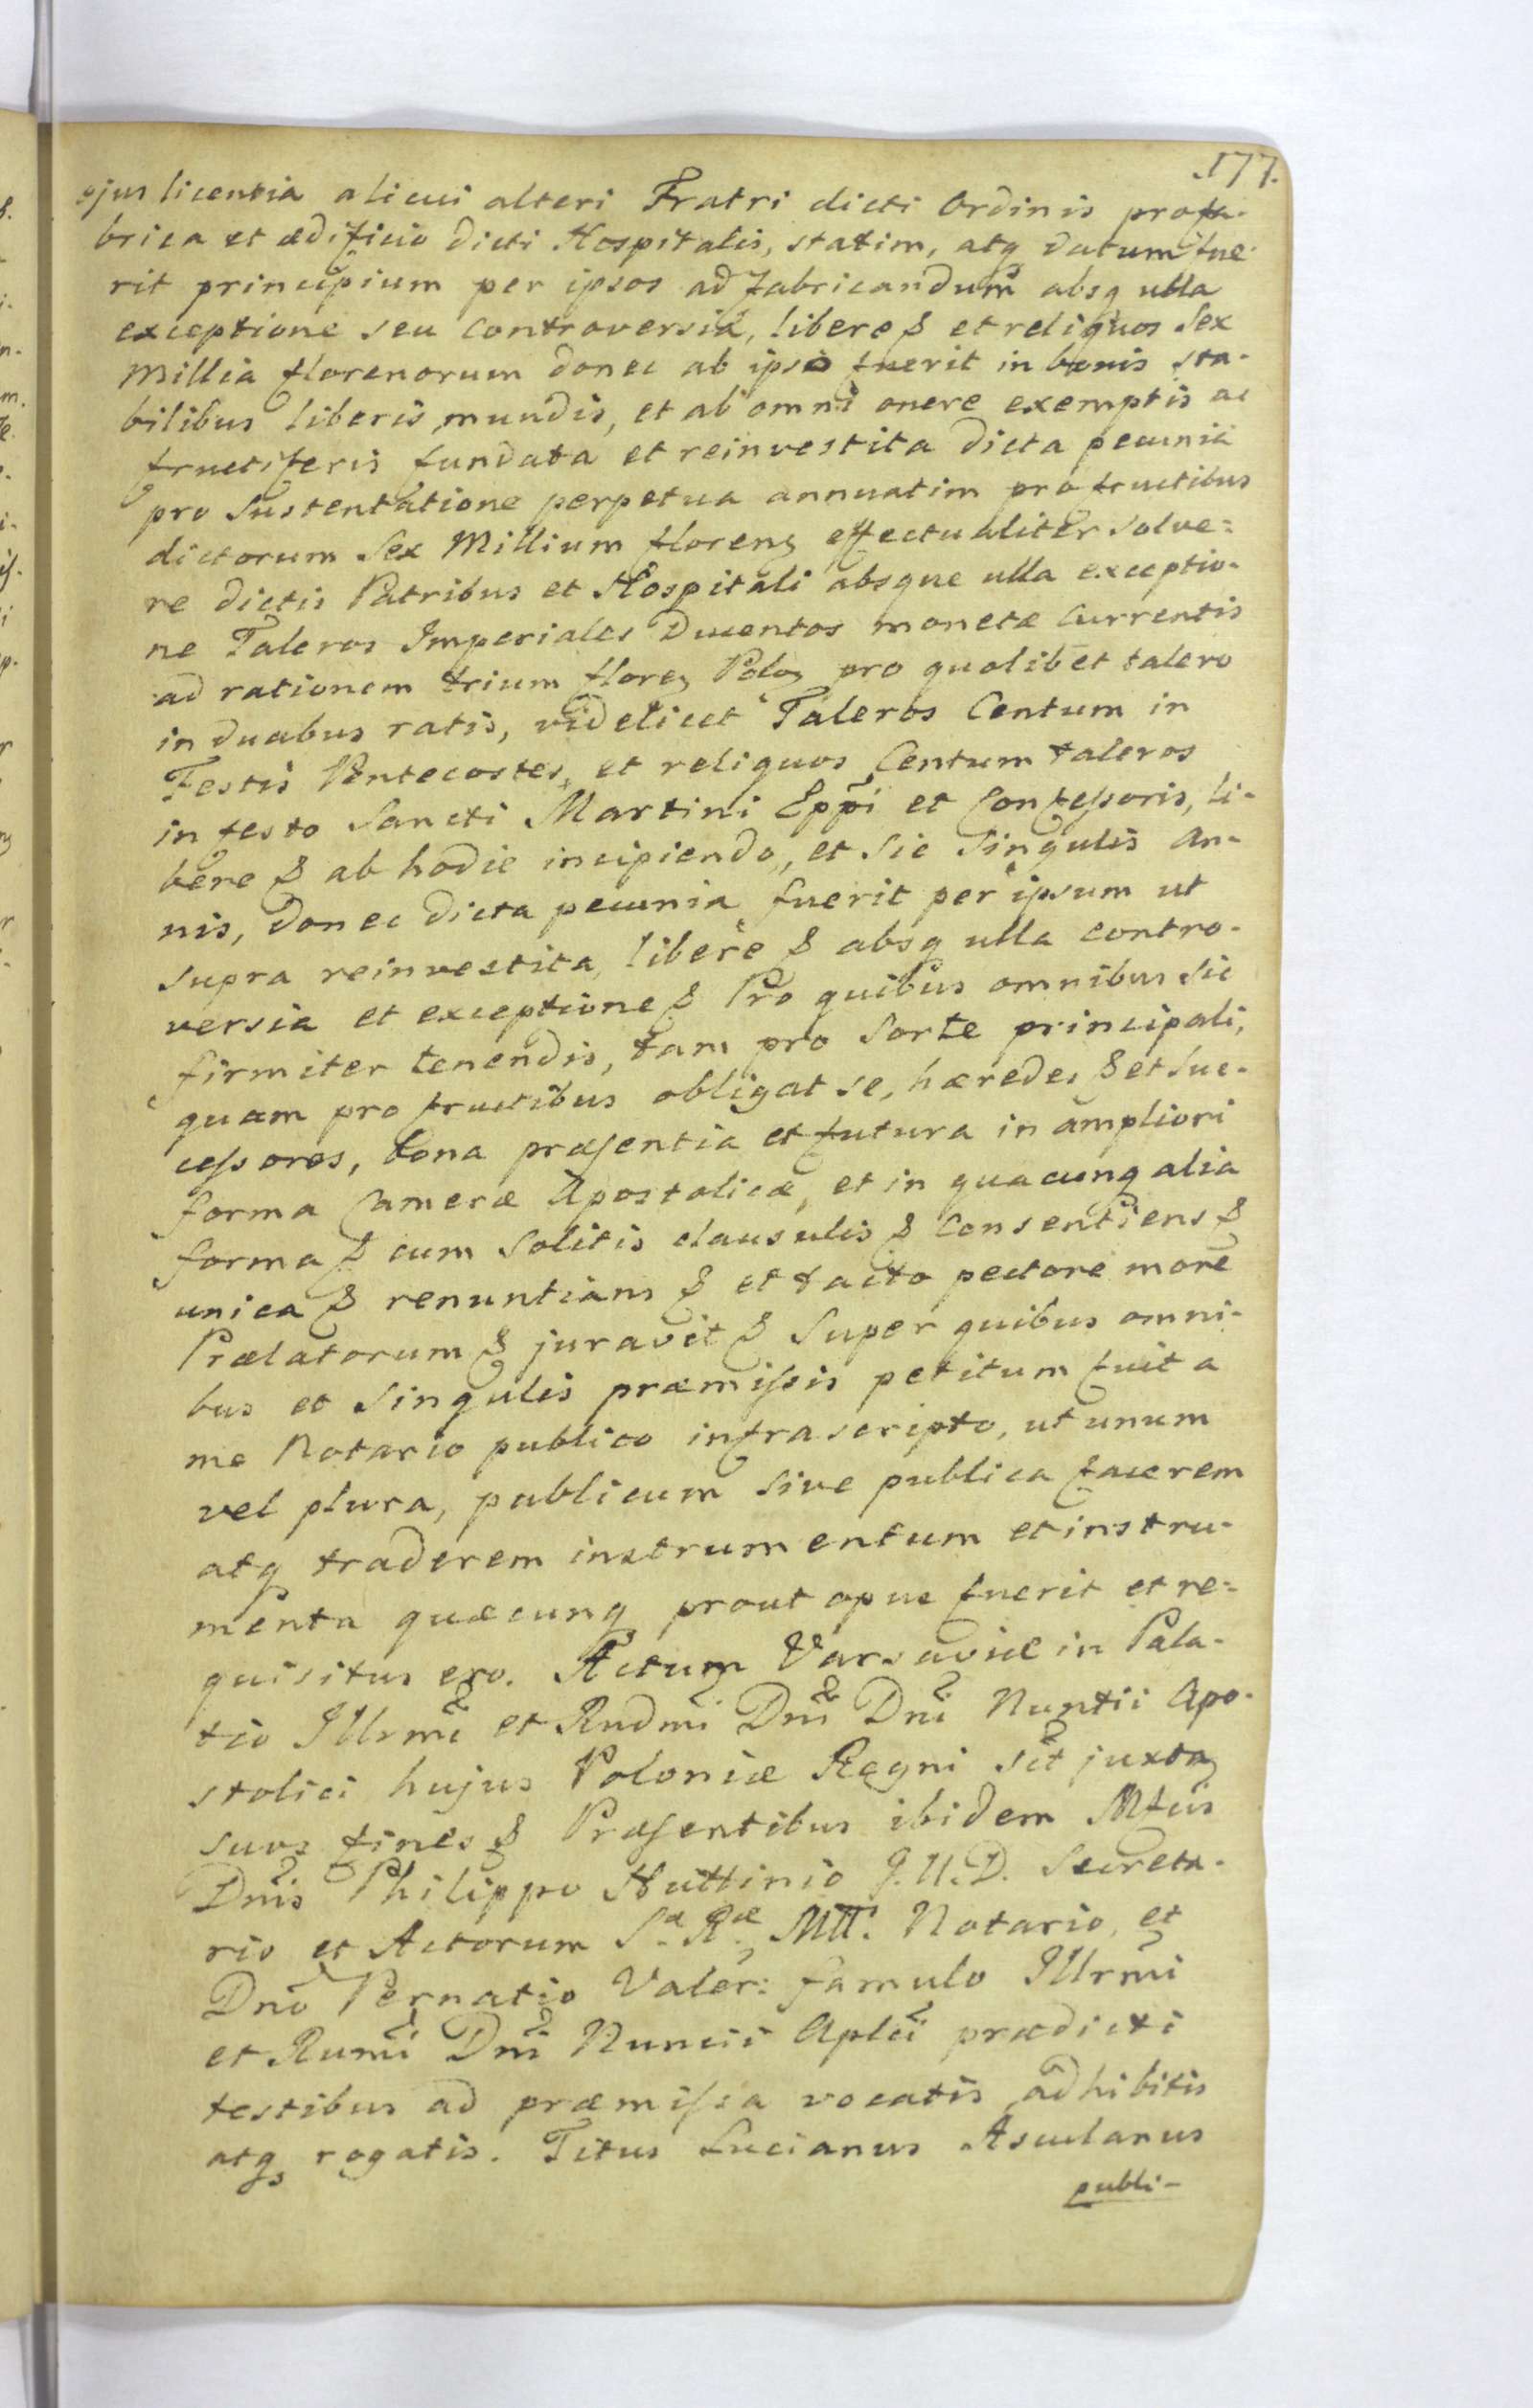 177.
ejus licentia alicui alteri Fratri dicti Ordinis pro fa-
brica et ædificio dicti Hospitalis, statim, atq datum fue-
rit principium per ipsos ad fabricandum absq ulla
exceptione seu controversia, libere & et reliquos Sex
Millia florenorum donec ab ipso fuerit in bonis sta-
bilibus liberis mundis, et ab omni onere exemptis ac
fructiferis fundata et reinvestita dicta pecunia
pro Sustentatione perpetua annuatim pro fructibus
dictorum Sex Millium floreng effectualiter solve=
re dictis Patribus et Hospitali absque ulla exceptio-
ne Taleros Imperiales Ducentos monetæ Currentis
ad rationem trium floreg Polog pro quolibet talero
in duabus ratis, videlicet Taleros Centum in
Festis Pentecostes, et reliquos Centum taleros
in festo Sancti Martini Eppi et Confessoris, li-
bere & ab hodie incipiendo, et sic Singulis An-
nis, donec dicta pecunia fuerit per ipsum ut
supra reinvestita, libere & absq ulla contro-
versia et exceptione & Pro quibus omnibus sic
firmiter tenendis, tam pro Sorte principali,
quam pro fructibus obligat se, hæredes & et Suc-
cessores, bona præsentia et futura in ampliori
forma Cameræ Apostolicæ, et in quacunq alia
forma & cum Solitis clausulis & Consentiens &
unica & renuntians & et tacto pectore more
Prælatorum & juravit & Super quibus omni-
bus et Singulis præmissis petitum fuit a
me Notario publico infrascripto, ut unum
vel plura, publicum sive publica facerem
atq traderem instrumentum et instru-
menta quæcunq prout opus fuerit et re=
quisitus ero. Actum Varsaviæ in Pala-
tio Illrmi et Rndmi Dni Dni Nuntii Apo-
stolici hujus Poloniæ Regni sit juxta
suos fines & Præsentibus ibidem Mfcis
Dnis Philippo Huttinio J.U.D. Secreta-
rio et Actorum Sæ Ræ Mtt. Notario, et
Dno Pernatio Valer: famulo Illrmi
et Rumi Dni Nuncii Aplci prædicti
testibus ad præmissa vocatis adhibitis
atq rogatis. Titus Lucianus Asculanus
publi-